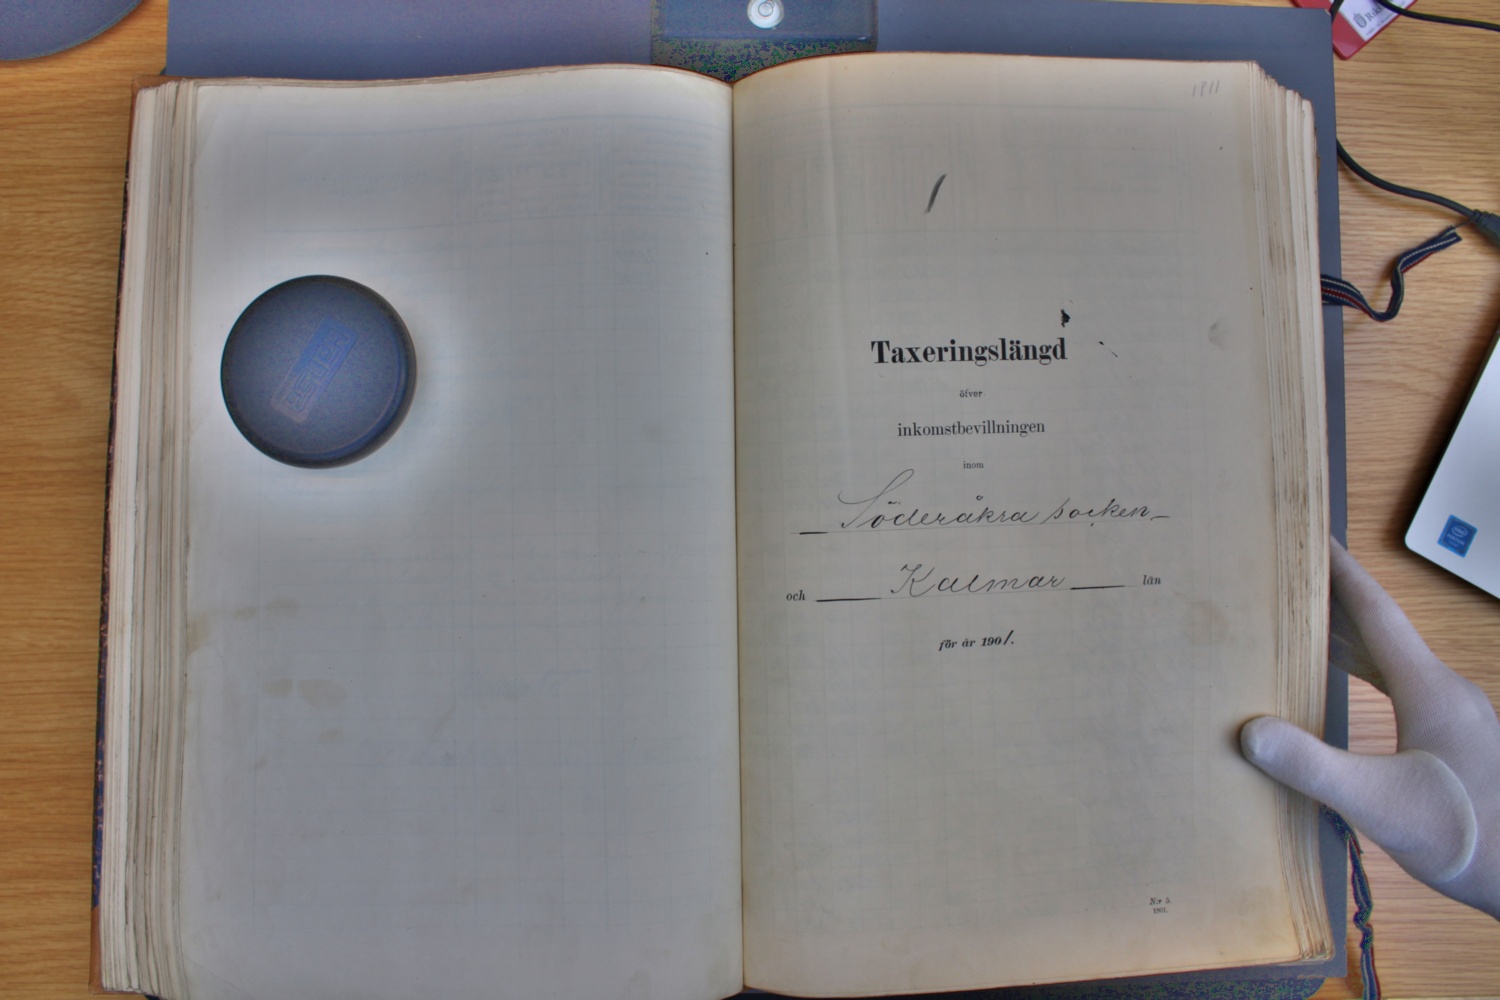 1911
/
Taxeringslängd
öfver
inkomstbevillningen
inom
Söderåkra socken
och Kalmar län
för år 1901.
N:r 5.
1901.